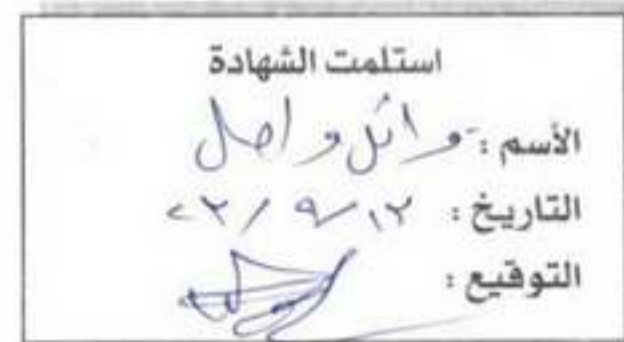 استلمت الشهادة
الأسم : وائل واصل
التاريخ : ١٢ / ٩ / ٢٢
التوقيع :